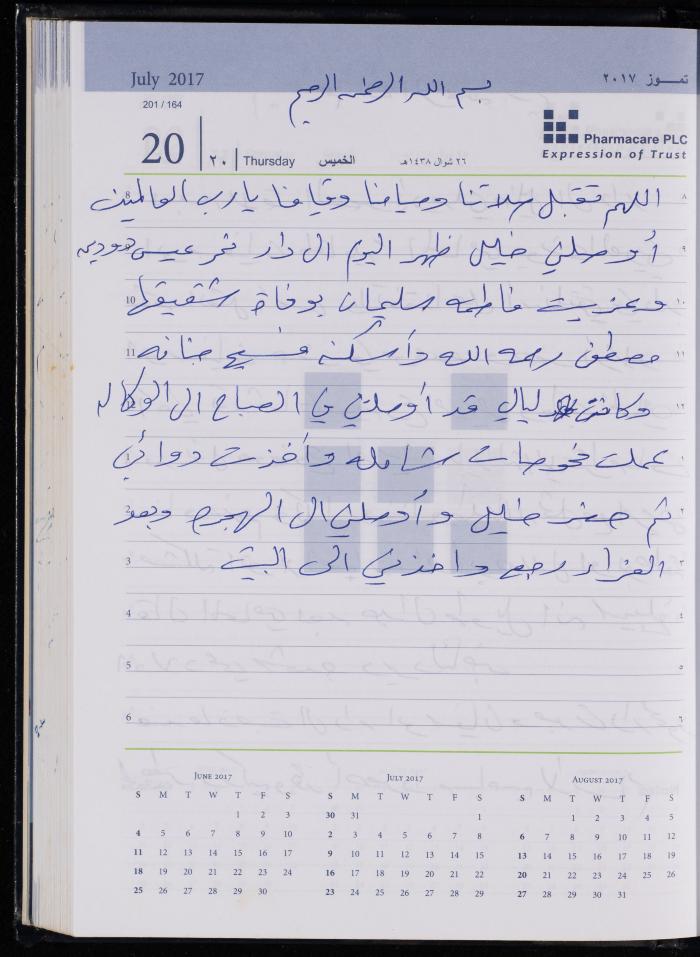 July 2017
تمـــوز ٢٠١٧
بسم الله الرحمن الرحيم
201 / 164
20 ٢٠ Thursday الخميس ٢٦ شوال ١٤٣٨هـ
Pharmacare PLC
Expression of Trust
8 اللهم تقبل صلاتنا وصيامنا وقيامنا يارب العالمين ٨
أوصلني خليل ظهر اليوم الى دار عيسى ٩
10 وعزيت فاطمه سليمان بوفاة شقيقها ١٠
11 مصطفى رحمه الله وأسكنه فسيح جنانه ١١
وكانت ليالي قد أوصلتني في الصباح الى الوكاله ١٢
1 عملت فحوصات شامله وأخذت دوائي ١
2 ثم حضر خليل وأوصلني الى وبعد ٢
3 العزاء رجع واخذني الى البيت ٣
4 ٤
5 ٥
6 ٦
JUNE 2017
S M T W T F S
1 2 3
4 5 6 7 8 9 10
11 12 13 14 15 16 17
18 19 20 21 22 23 24
25 26 27 28 29 30
JULY 2017
S M T W T F S
30 31 1
2 3 4 5 6 7 8
9 10 11 12 13 14 15
16 17 18 19 20 21 22
23 24 25 26 27 28 29
AUGUST 2017
S M T W T F S
1 2 3 4 5
6 7 8 9 10 11 12
13 14 15 16 17 18 19
20 21 22 23 24 25 26
27 28 29 30 31